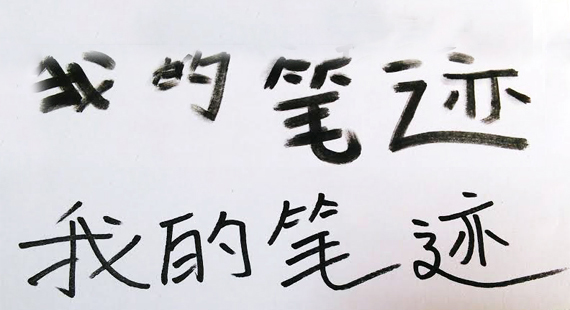 我的笔迹
我的笔迹